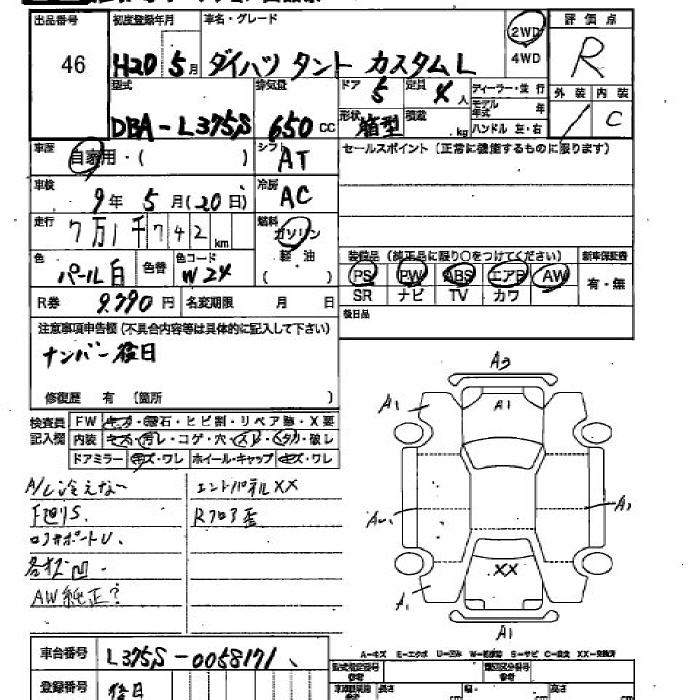 出品番号
46
初度登録年月
H20 5月
車名・グレード
ダイハツ タント カスタムL
2WD
4WD
評価点
R
外装 内装
/ C
型式
DBA-L375S
排気量
650cc
ドア
5
定員
4人
ディーラー・並行
モデル年式 年
ハンドル 左・右
形状
箱型
積載
.kg
車歴
自家用・( )
シフト
AT
セールスポイント (正常に機能するものに限ります)
車検
9年 5月(20日)
冷房
AC
走行
7万1千742km
燃料
ガソリン
軽油
( )
色
パール白
色替
色コード
W24
装備品 (純正品に限り○をつけてください)
新車保証書
PS PW ABS エアB AW
有・無
SR ナビ TV カワ
R券 9.790円
名変期限 月 日
後日品
注意事項申告欄(不具合内容等は具体的に記入して下さい)
ナンバー後日
修復歴 有 (箇所 )
検査員記入欄
FW キズ・飛石・ヒビ割・リペア跡・X要
内装 キズ・汚レ・コゲ・穴・スレ・ヘタリ・破レ
ドアミラー キズ・ワレ ホイール・キャップ キズ・ワレ
A/C冷えない
エンドパネルXX
下廻りS.
Rフロア歪
コアサポートU.
各所凹
AW純正?
A3
A1
A1
A1
XX
A1
A1
A=キズ E=エクボ U=凹み W=板金跡 S=サビ C=腐食 XX=交換済
車台番号
L375S-0058171
型式指定番号
参考
類別区分番号
参考
登録番号
後日
長さ cm
幅 cm
高さ cm